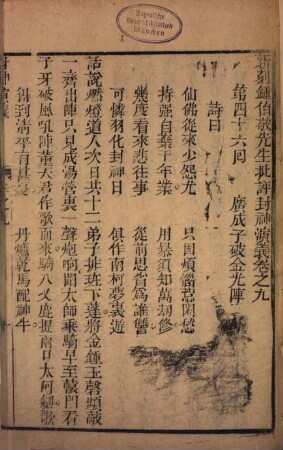 Bayerische
Staatsbibliothek
München
新刻鍾伯敬先生批評封神演義卷之九
第四十六回　廣成子破金光陣
詩曰
仙佛從來少怨尤　只因煩惱惹閑愁
恃强自棄千年業　用暴須知萬劫修
幾度看來悲往事　從前思省爲誰讐
可憐羽化封神日　俱作南柯夢裏遊
話說燃燈道人次日共十二弟子排班下蓬將金鍾玉磬頻敲
一齊出陣只見成湯營裏一聲炮响聞太師乘騎早至轅門看
子牙破風吼陣董天君作歌而來騎八叉鹿提兩口太阿劍歌
得到清平有甚憂　丹爐乾馬配坤牛